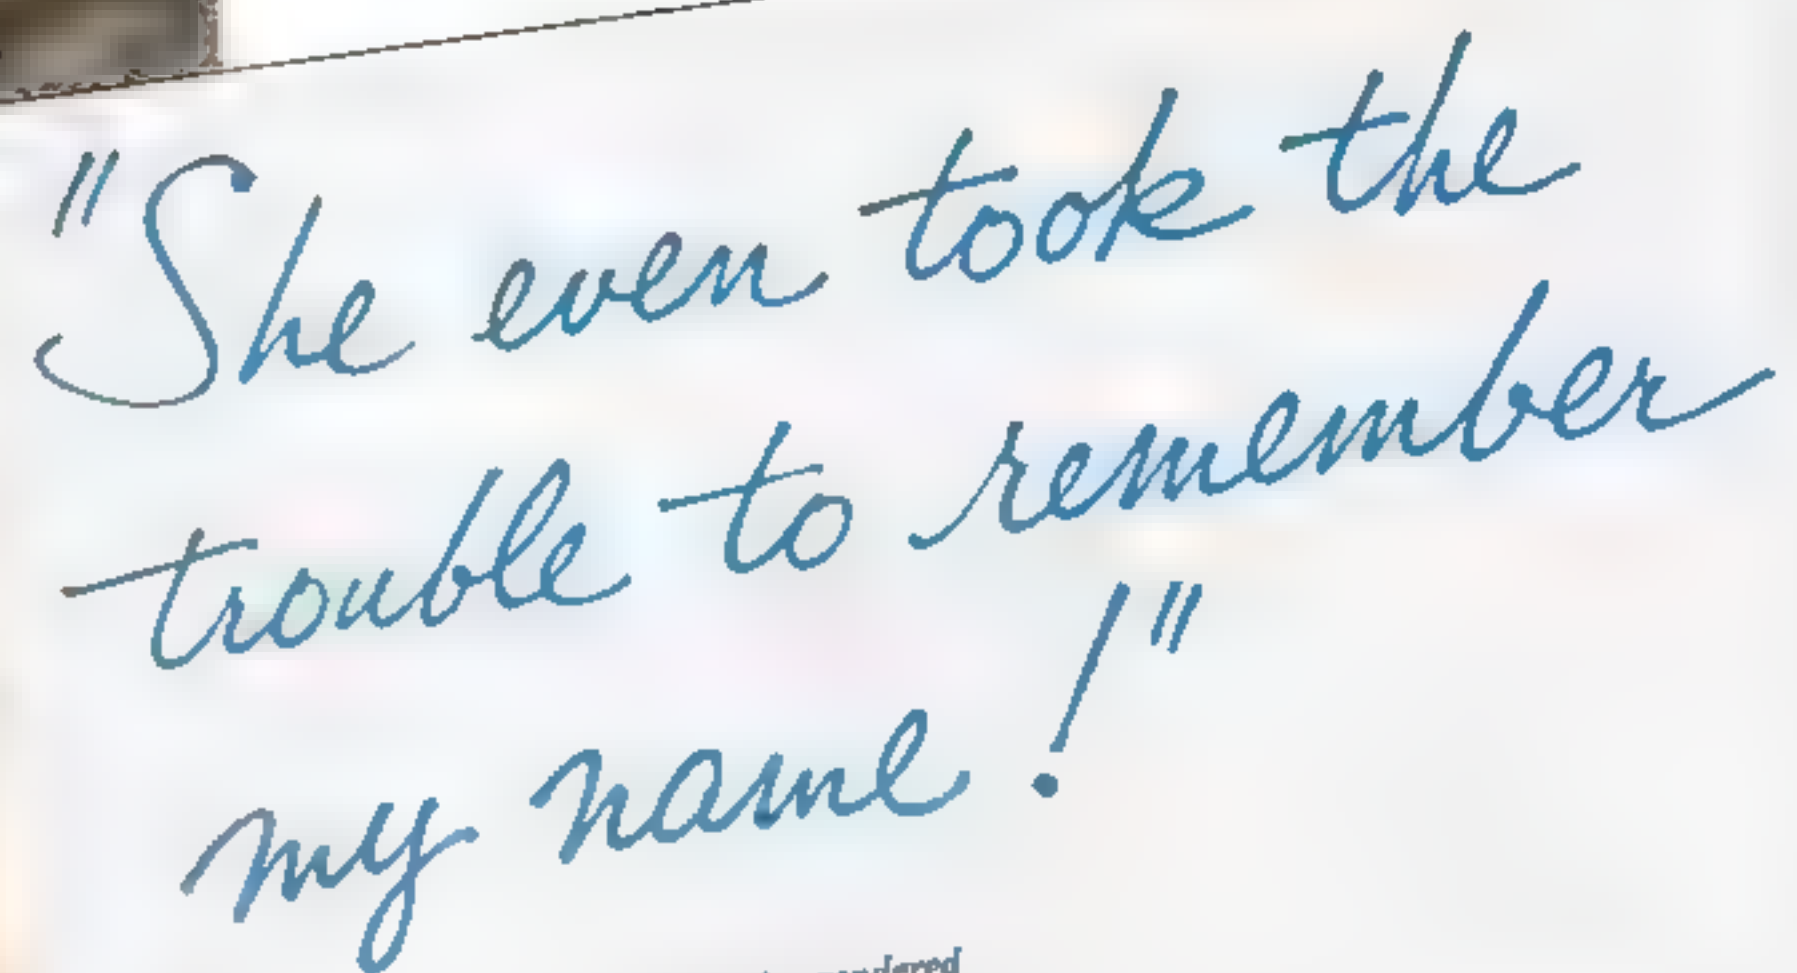 "She even took the
trouble to remember
my name!"